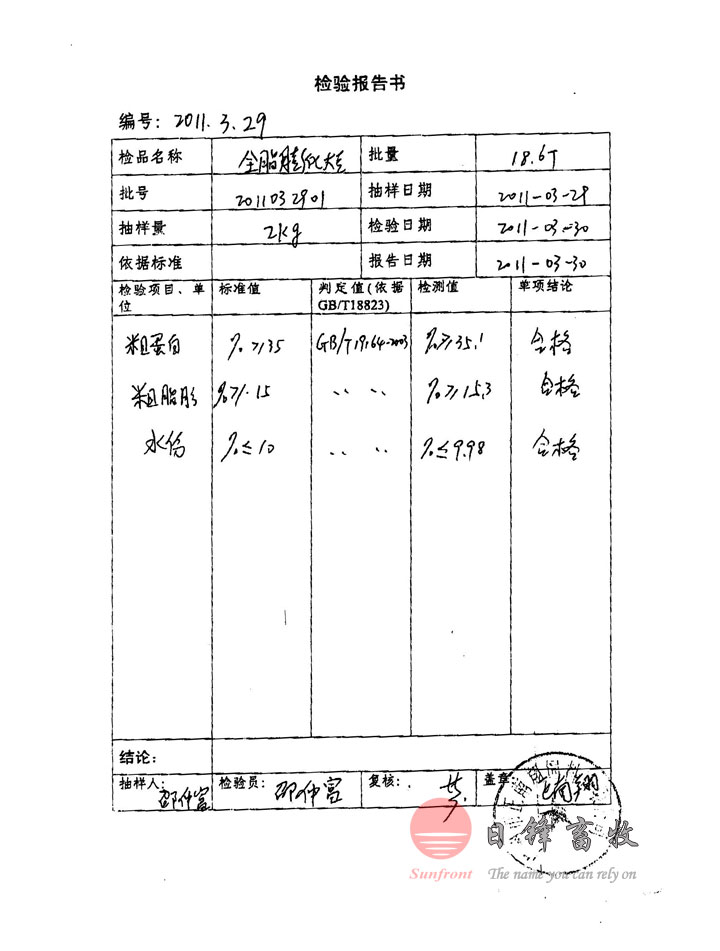 检验报告书
编号: 2011.3.29
检品名称 全脂膨化大豆 批量 18.6T
批号 2011032901 抽样日期 2011-03-29
抽样量 2kg 检验日期 2011-03-30
依据标准 报告日期 2011-03-30
检验项目、单位 标准值 判定值(依据GB/T18823) 检测值 单项结论
粗蛋白 %≥35 GB/T19164-2003 %≥35.1 合格
粗脂肪 %≥15 〃 〃 %≥15.3 合格
水份 %≤10 〃 〃 %≤9.98 合格
结论:
抽样人: 邵仲富 检验员: 邵仲富 复核: 盖章
日锋畜牧
Sunfront The name you can rely on